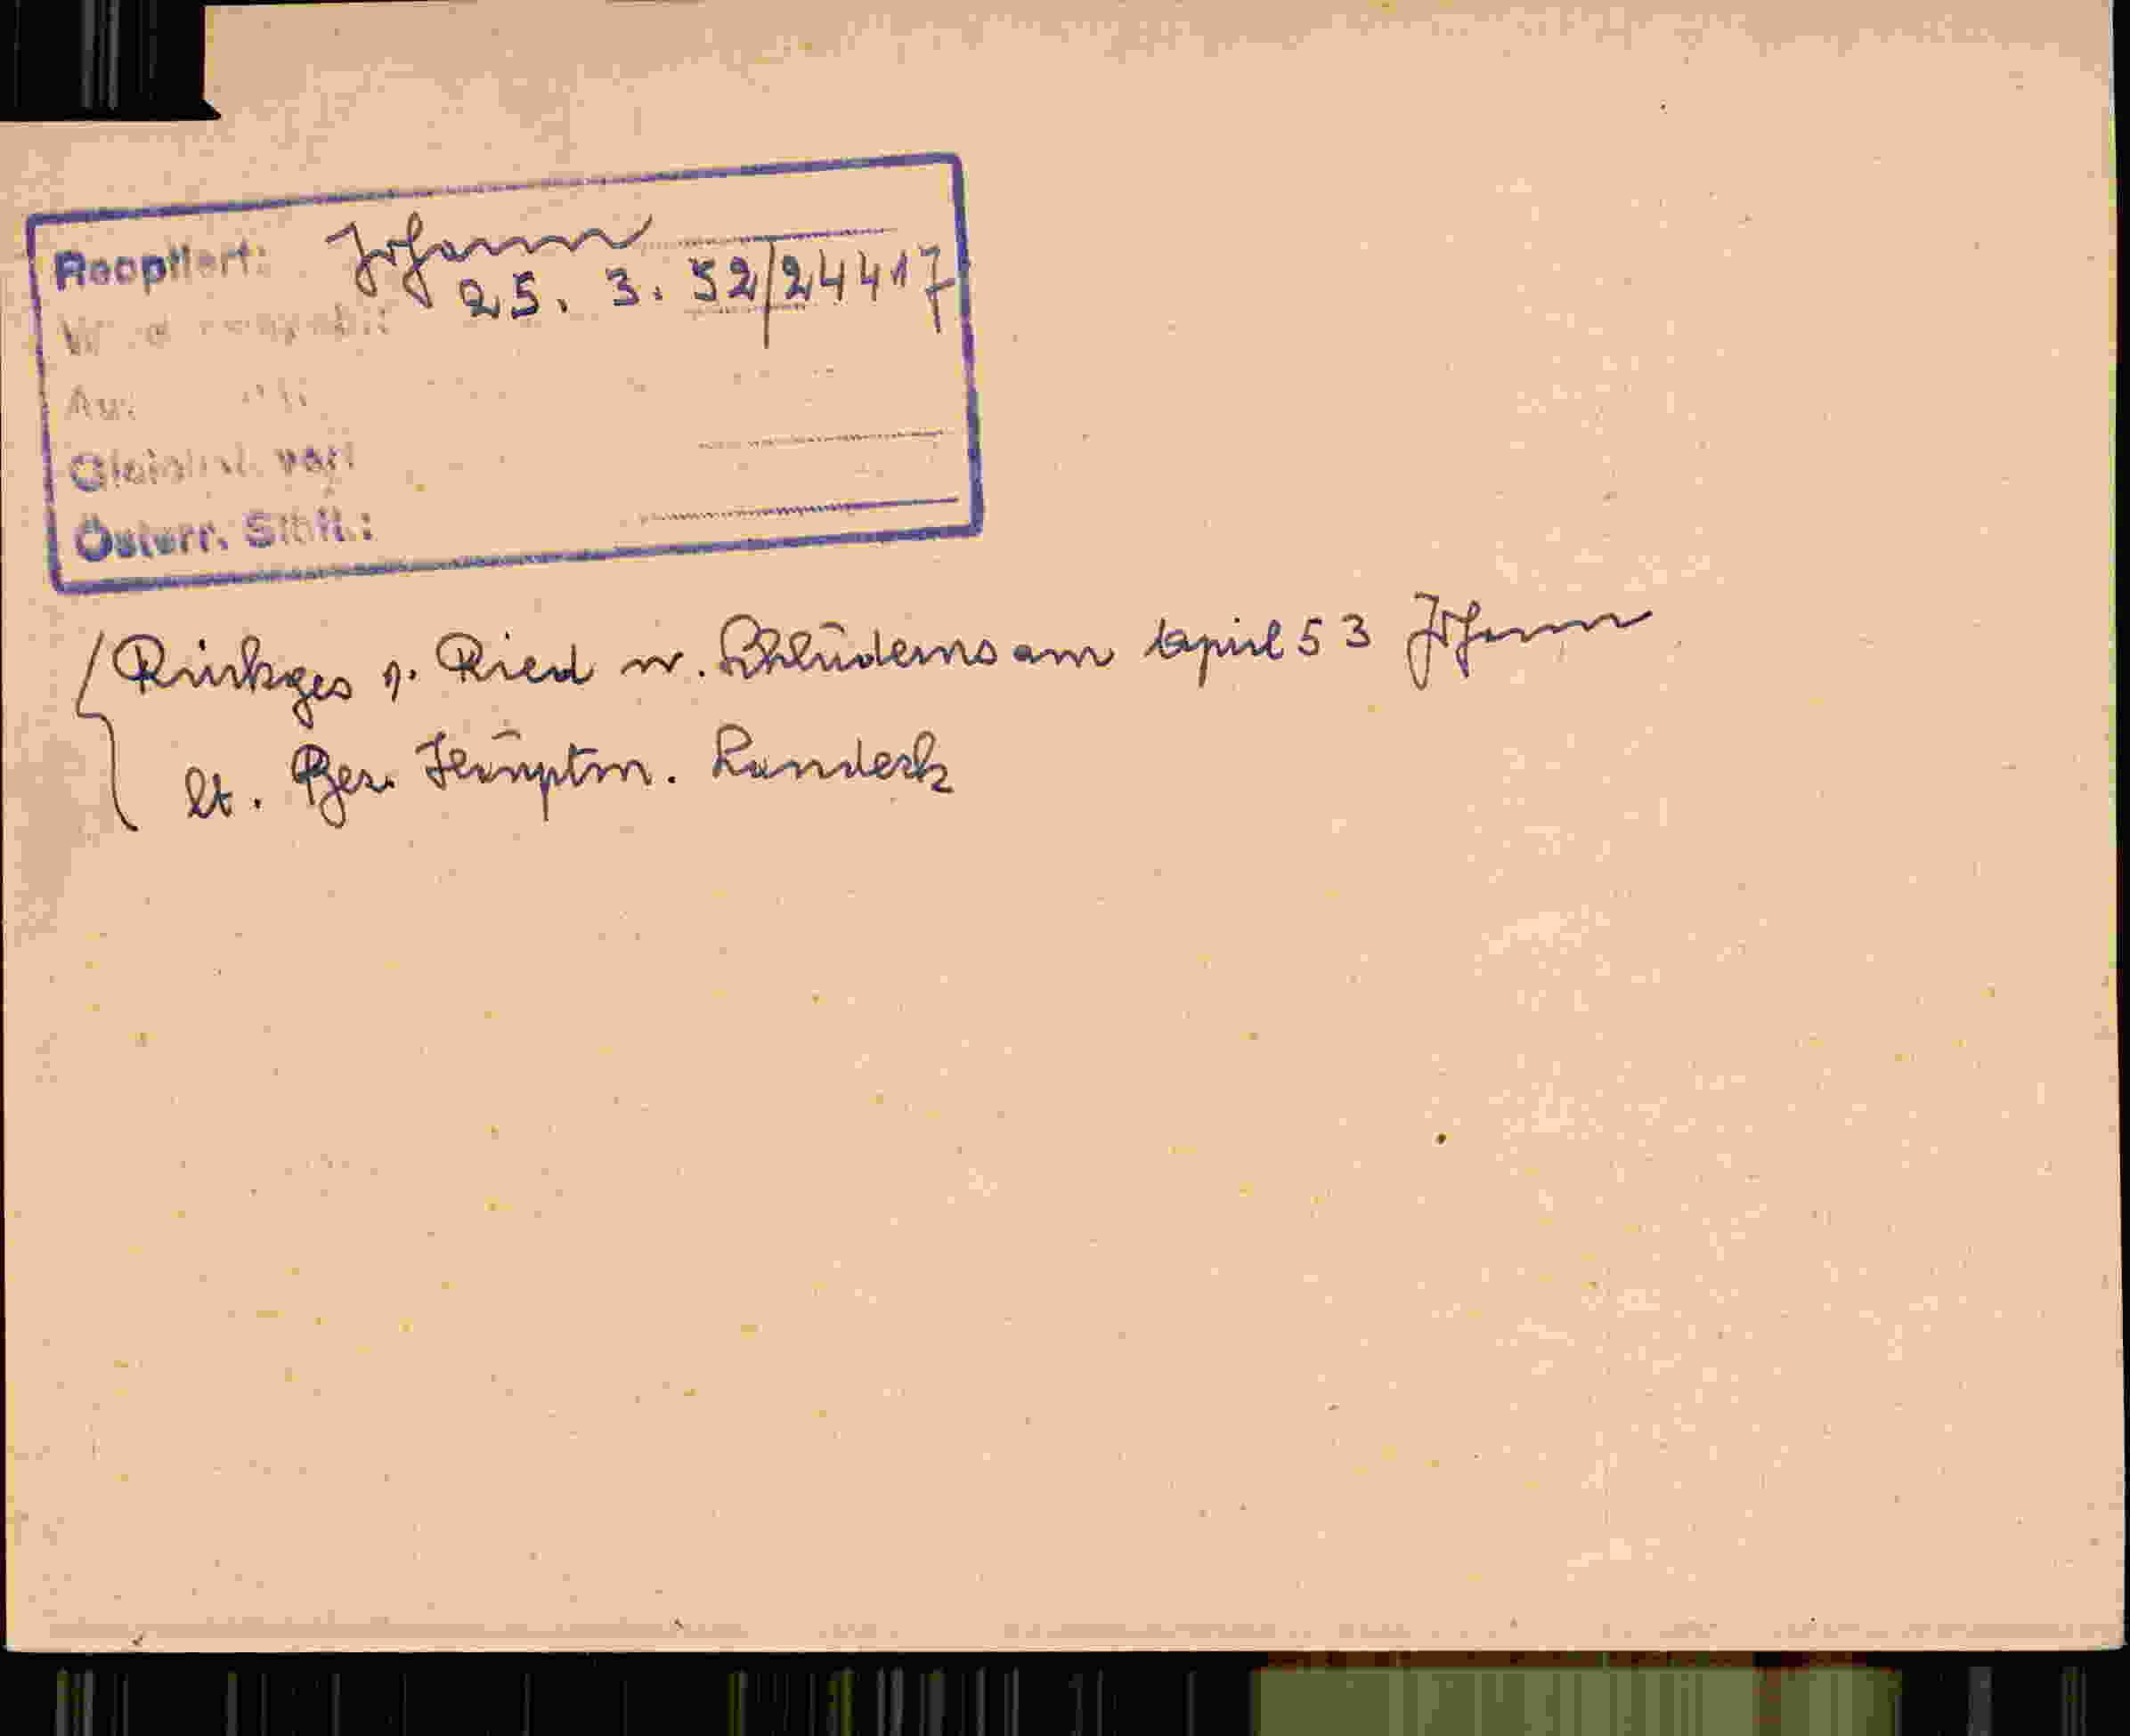 Reoptiert: Johann
25. 3. 52/24417
Österr. Stbft.:
Rückges n. Ried w. Schludernsam April 53 Johann
lt. Bez. Hauptm. Landeck